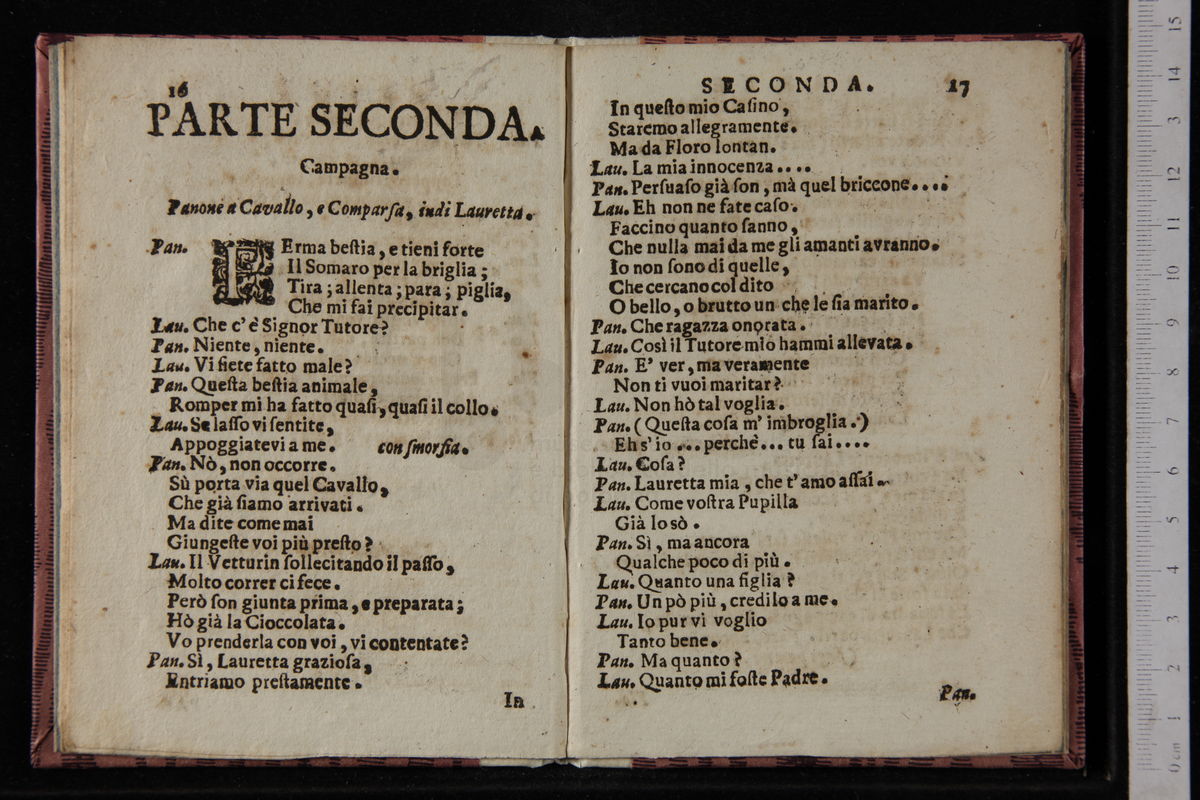 16
PARTE SECONDA.
Campagna.
Panone a Cavallo, e Comparſa, indi Lauretta.
Pan. FErma beſtia, e tieni forte
Il Somaro per la briglia;
Tira; allenta; para; piglia,
Che mi fai precipitar.
Lau. Che c' è Signor Tutore?
Pan. Niente, niente.
Lau. Vi ſiete fatto male?
Pan. Queſta beſtia animale,
Romper mi ha fatto quaſi, quaſi il collo.
Lau. Se laſſo vi ſentite,
Appoggiatevi a me. con ſmorfia.
Pan. Nò, non occorre.
Sù porta via quel Cavallo,
Che già ſiamo arrivati.
Ma dite come mai
Giungeſte voi più preſto?
Lau. Il Vetturin ſollecitando il paſſo,
Molto correr ci fece.
Però ſon giunta prima, e preparata;
Hò già la Cioccolata.
Vo prenderla con voi, vi contentate?
Pan. Sì, Lauretta grazioſa,
Entriamo preſtamente.
In
SECONDA. 17
In queſto mio Caſino,
Staremo allegramente.
Ma da Floro lontan.
Lau. La mia innocenza....
Pan. Perſuaſo già ſon, mà quel briccone....
Lau. Eh non ne fate caſo.
Faccino quanto ſanno,
Che nulla mai da me gli amanti avranno.
Io non ſono di quelle,
Che cercano col dito
O bello, o brutto un che le ſia marito.
Pan. Che ragazza onorata.
Lau. Così il Tutore mio hammi allevata.
Pan. E' ver, ma veramente
Non ti vuoi maritar?
Lau. Non hò tal voglia.
Pan. (Queſta coſa m' imbroglia.)
Eh s' io ... perchè... tu ſai....
Lau. Coſa?
Pan. Lauretta mia, che t' amo aſſai.
Lau. Come voſtra Pupilla
Già lo sò.
Pan. Sì, ma ancora
Qualche poco di più.
Lau. Quanto una figlia?
Pan. Un pò più, credilo a me.
Lau. Io pur vi voglio
Tanto bene.
Pan. Ma quanto?
Lau. Quanto mi foſte Padre.
Pan.
0 cm 1 2 3 4 5 6 7 8 9 10 11 12 13 14 15